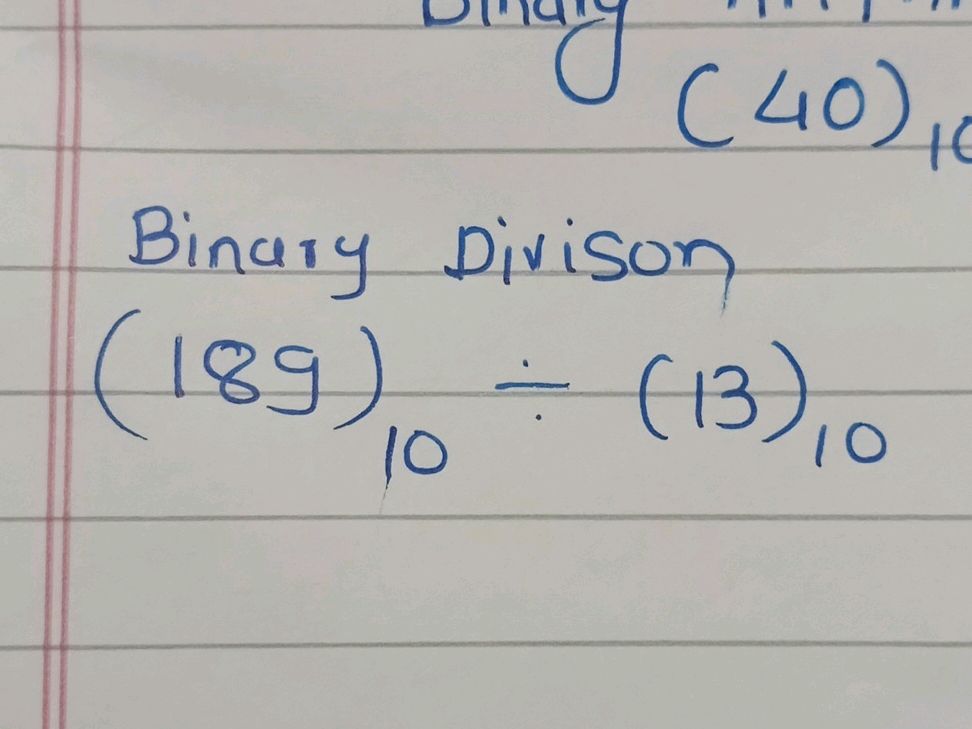 Binary
(40)10
Binary Divison
(189)10 ÷ (13)10